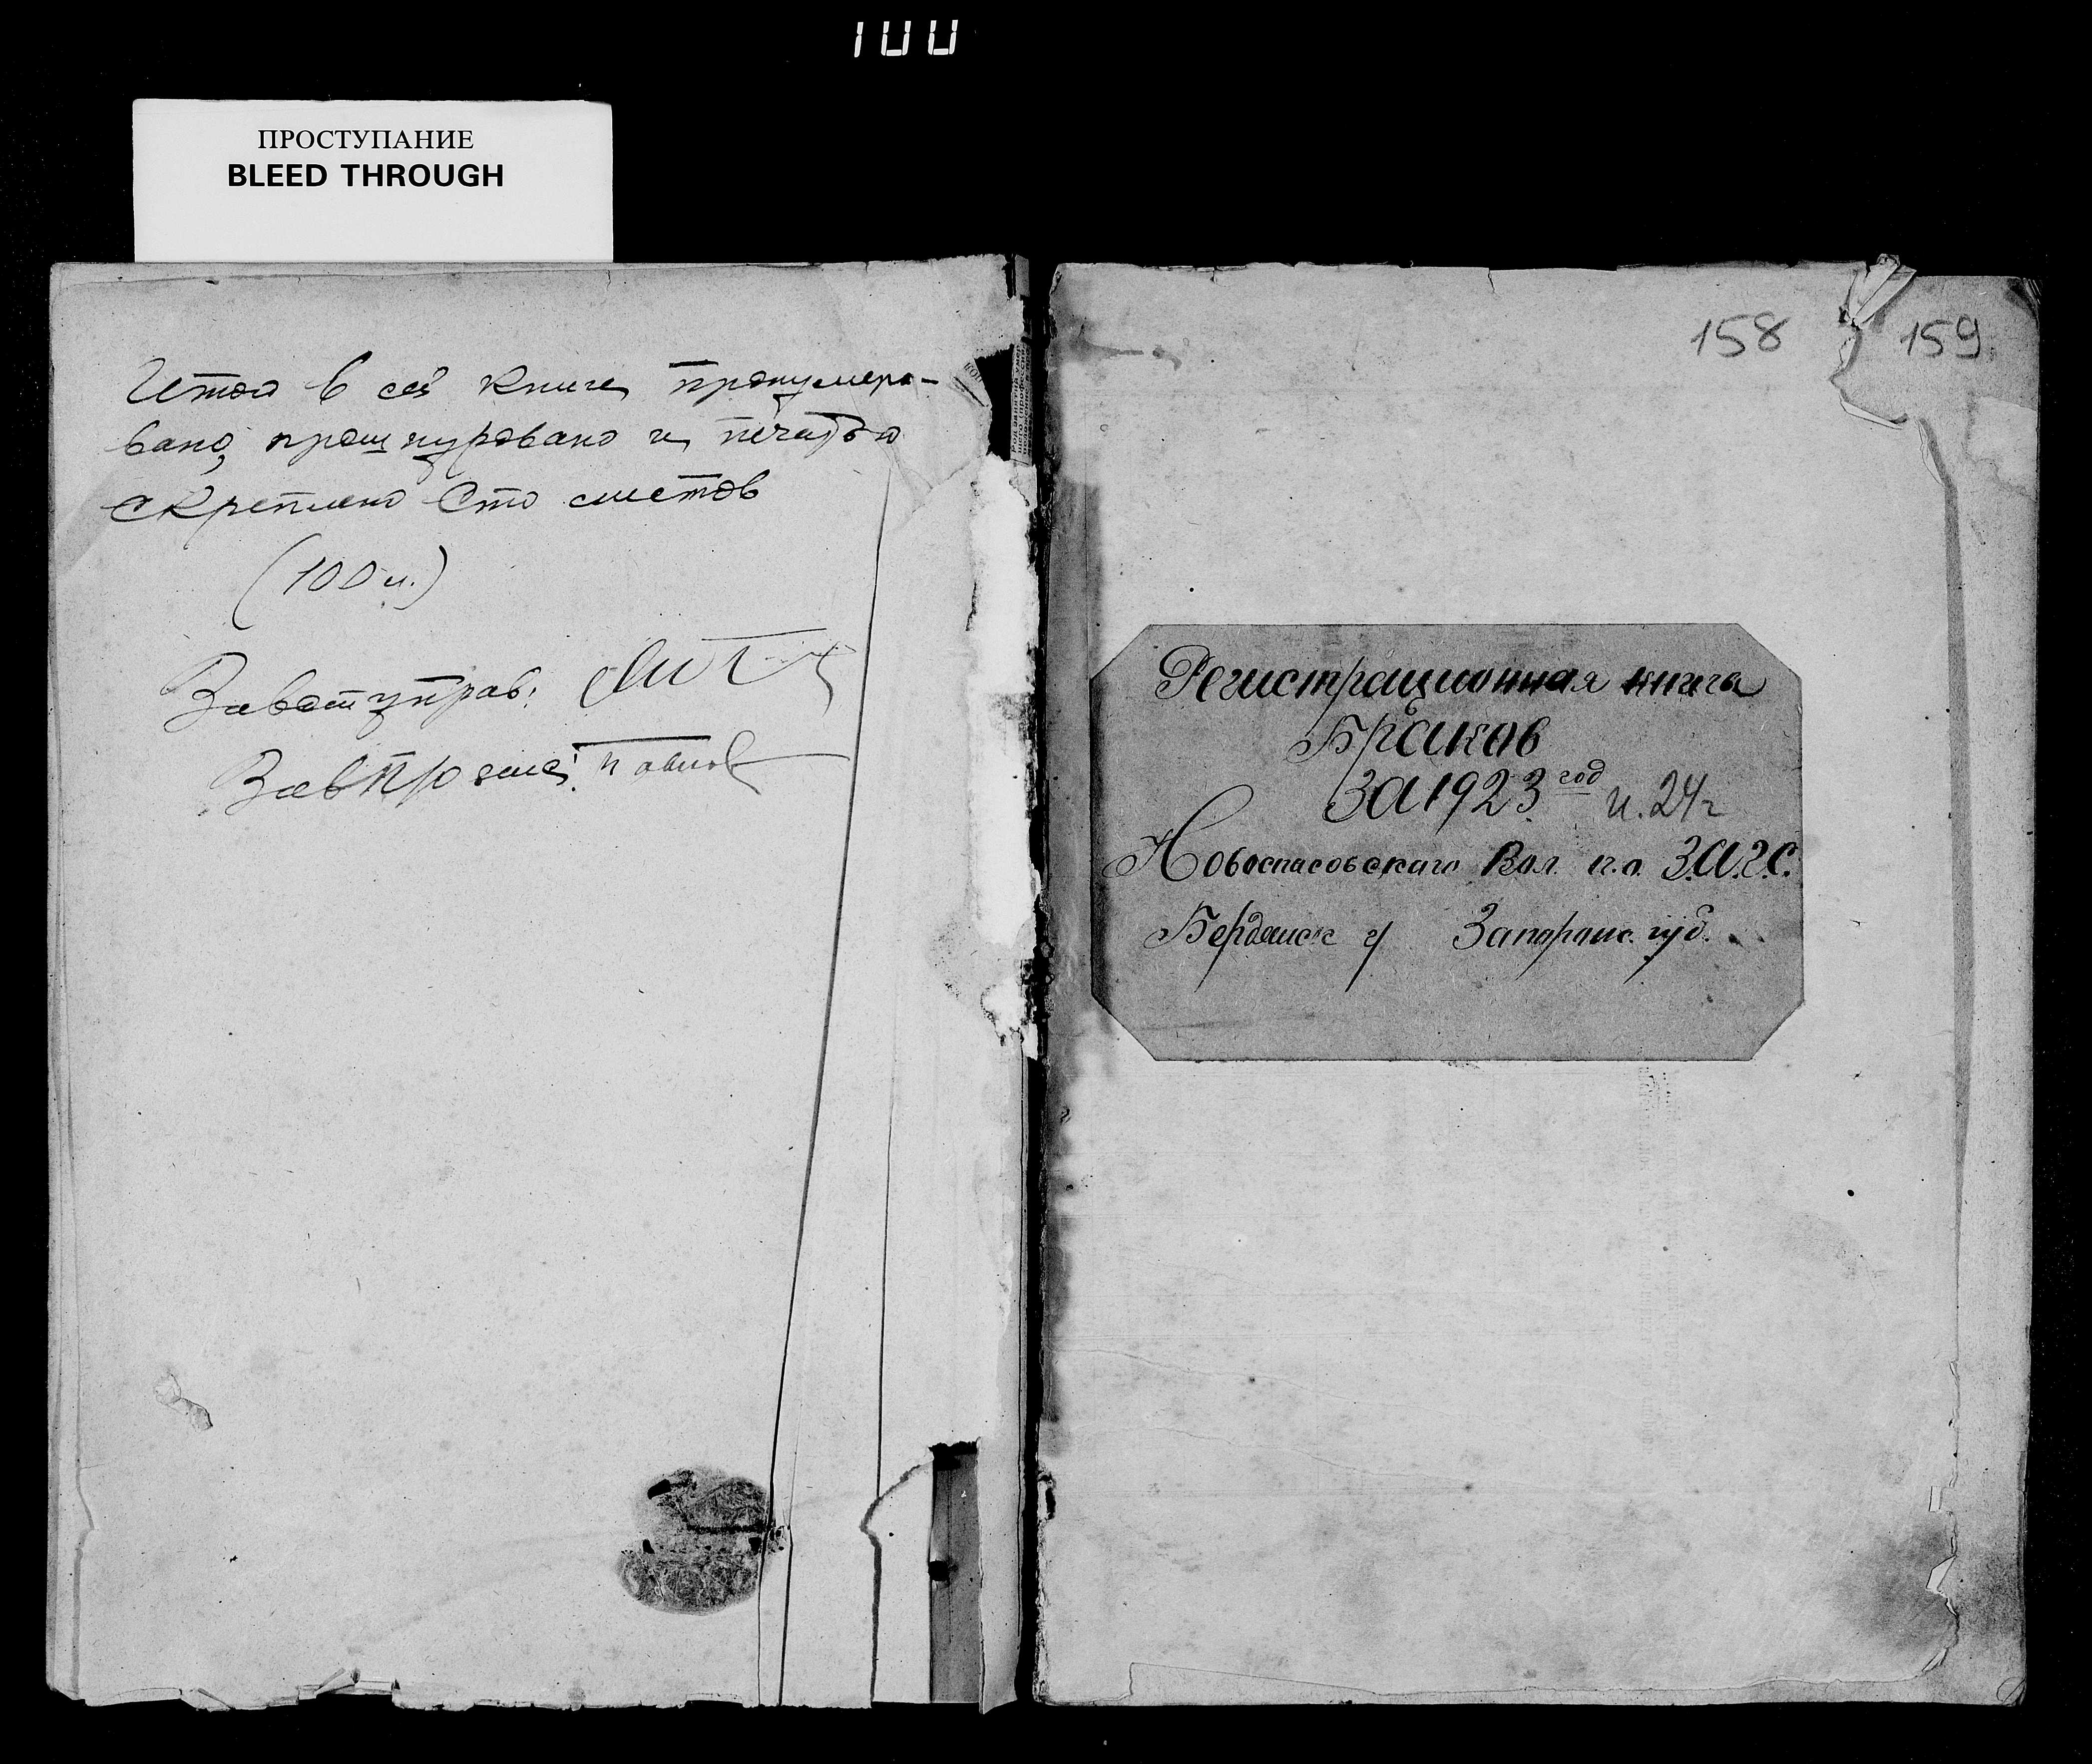 100
ПРОСТУПАНИЕ
BLEED THROUGH
Итого в сей книге пронумеро-
вано, прошнуровано и печатью
скреплено Сто листов
(100 л.)
Завотуправ:
158
159
Регистрационная книга
Браков
ЗА 1923 год и. 24 г
Новоспасовскаго Вол. п.о. З.А.Г.С.
Бердянск у Запорожс. губ.